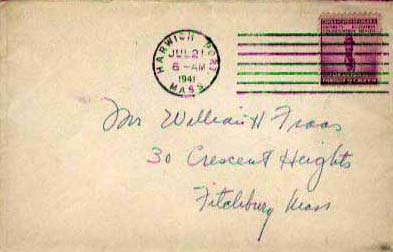 HARWICH PORT
JUL 21
6-AM
1941
MASS.
Mr William H Fraas
30 Crescent Heights
Fitchburg Mass